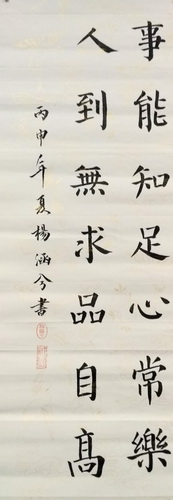 事能知足心常樂
人到無求品自高
丙申年夏楊涵兮書